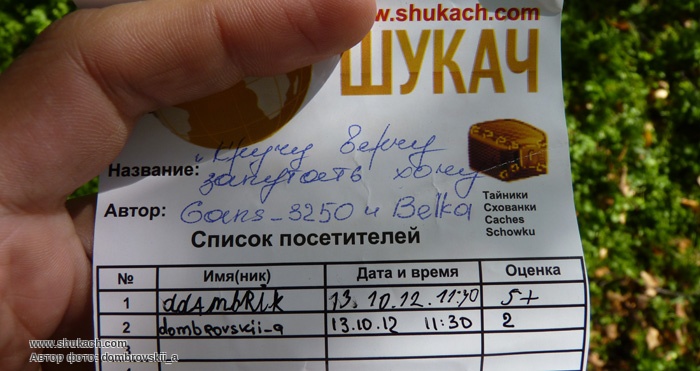 www.shukach.com
ШУКАЧ
Название: "Кручу верчу
запутать хочу
Тайники
Схованки
Caches
Schowku
Автор: Gans_3250 и Belka
Список посетителей
№ Имя(ник) Дата и время Оценка
1 ddambRik 13.10.12. 11:30 5+
2 dombrovskii_a 13.10.12 11:30 2
3
www.shukach.com
Автор фото: dombrovskij_a